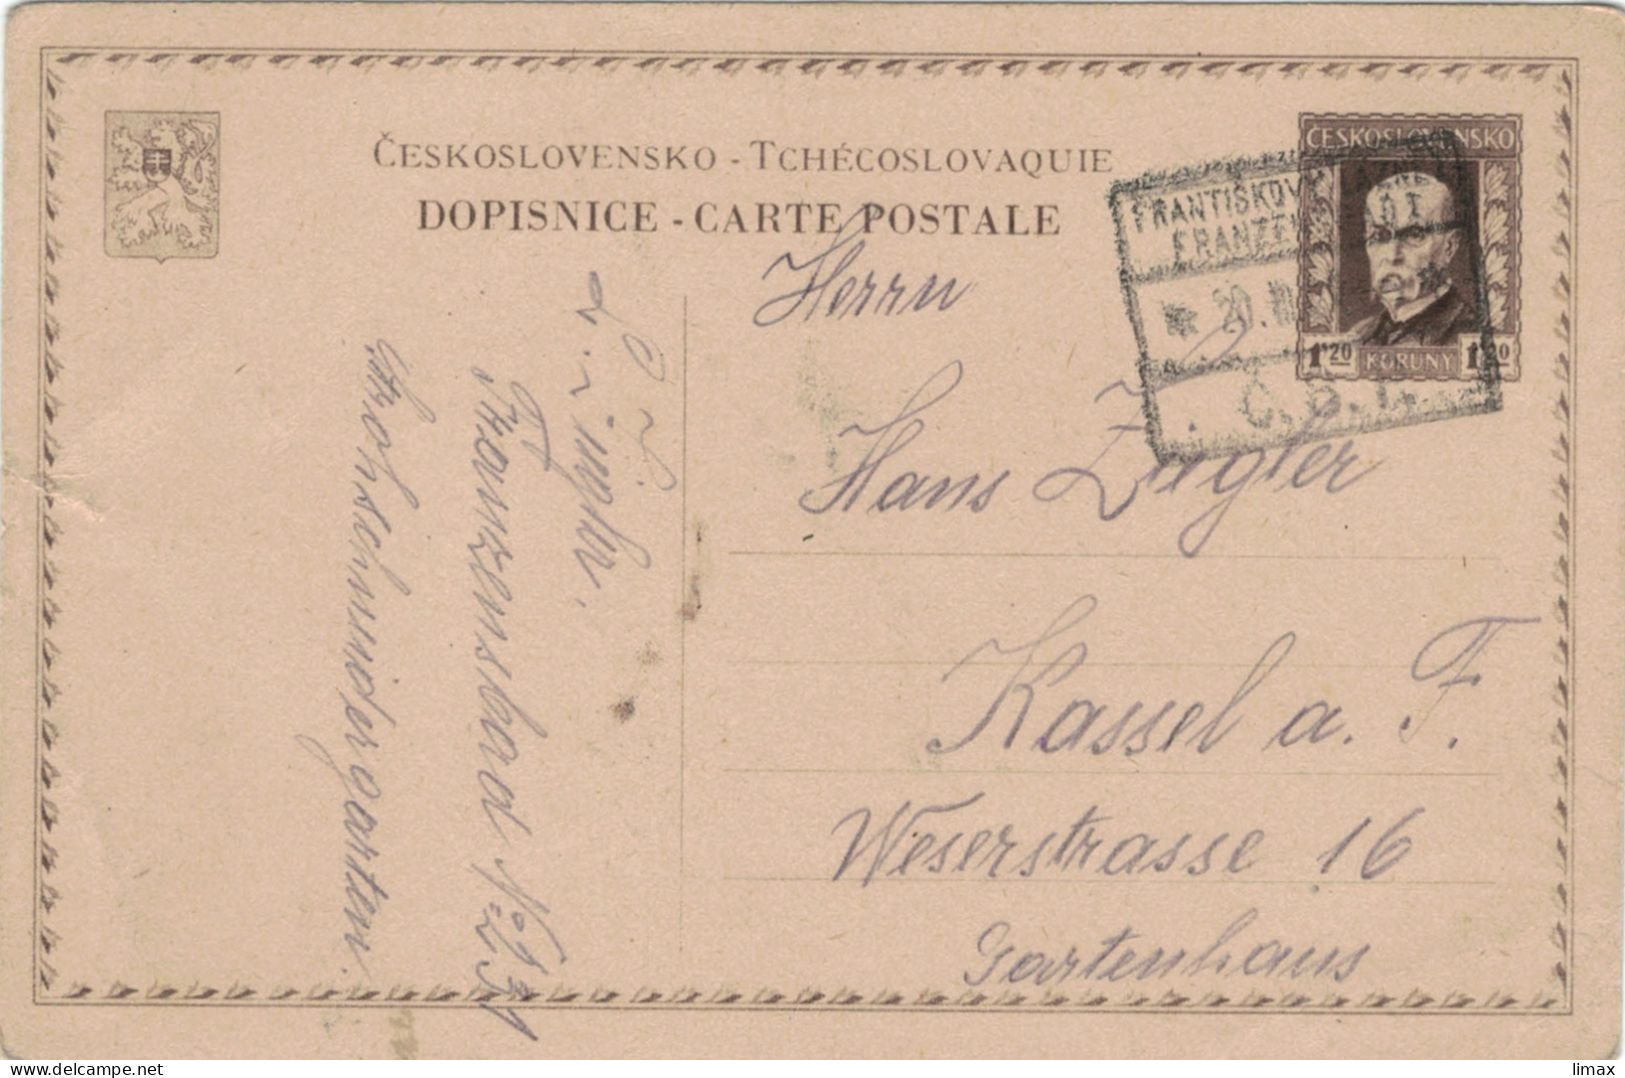 ČESKOSLOVENSKO - TCHÉCOSLOVAQUIE
DOPISNICE - CARTE POSTALE
ČESKOSLOVENSKO
1.20 KORUNY 1.20
FRANTIŠKOVY
FRANZEN
* 20.
Č.S.
Herrn
Hans Ziegler
Kassel a. F.
Weserstrasse 16
Gartenhaus
Franzensbad No 231
Strohschnidergarten.
limax